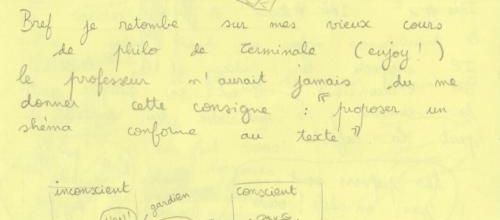 Bref je retombe sur mes vieux cours
de philo de terminale (enjoy !)
le professeur n'aurait jamais du me
donner cette consigne : " proposer un
shéma conforme au texte "
inconscient gardien conscient